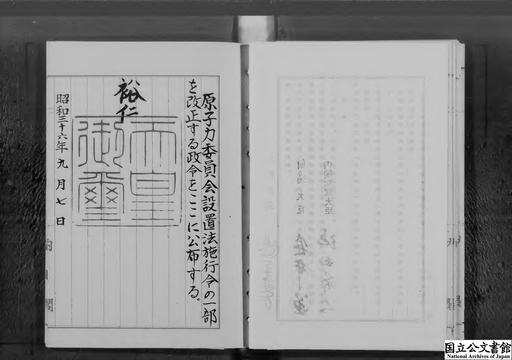 原子力委員会設置法施行令の一部
を改正する政令をここに公布する。
裕仁
天皇
御璽
昭和三十六年九月七日
内閣
国立公文書館
National Archives of Japan